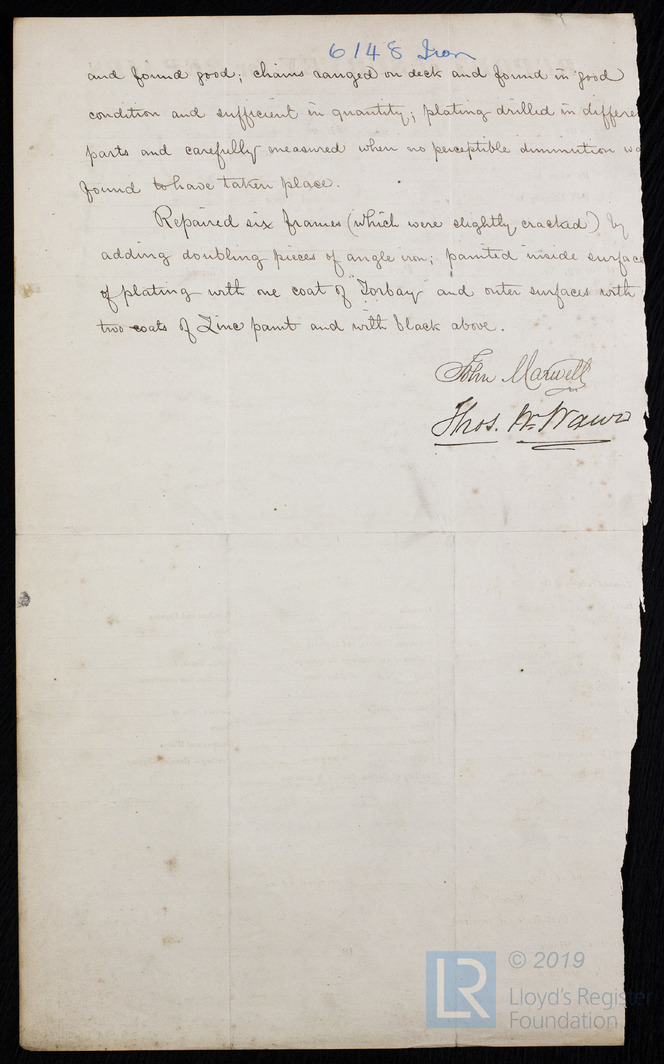 6148 Iron
and found good; chains ranged on deck and found in good
condition and sufficient in quantity; plating drilled in differen
parts and carefully measured when no perceptible diminution wa
found to have taken place.
Repaired six frames (which were slightly cracked) by
adding doubling pieces of angle iron; painted inside surface
of plating with one coat of "Torbay" and outer surfaces with
two coats of Zinc paint and with black above.
John Maxwell
Thos. W.
LR
© 2019
Lloyd's Register
Foundation